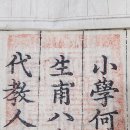 小學何
生甫八
代教人